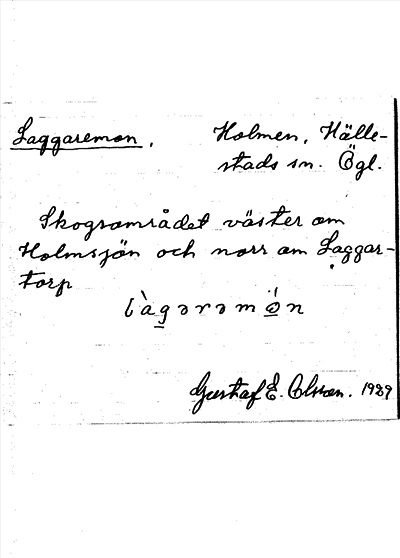 Laggaremon. Holmen, Hälle-
stads sn. Ögl.
Skogsområdet väster om
Holmsjön och norr om Laggar-
torp
làgərəmö́n
Gustaf E. Olsson. 1929